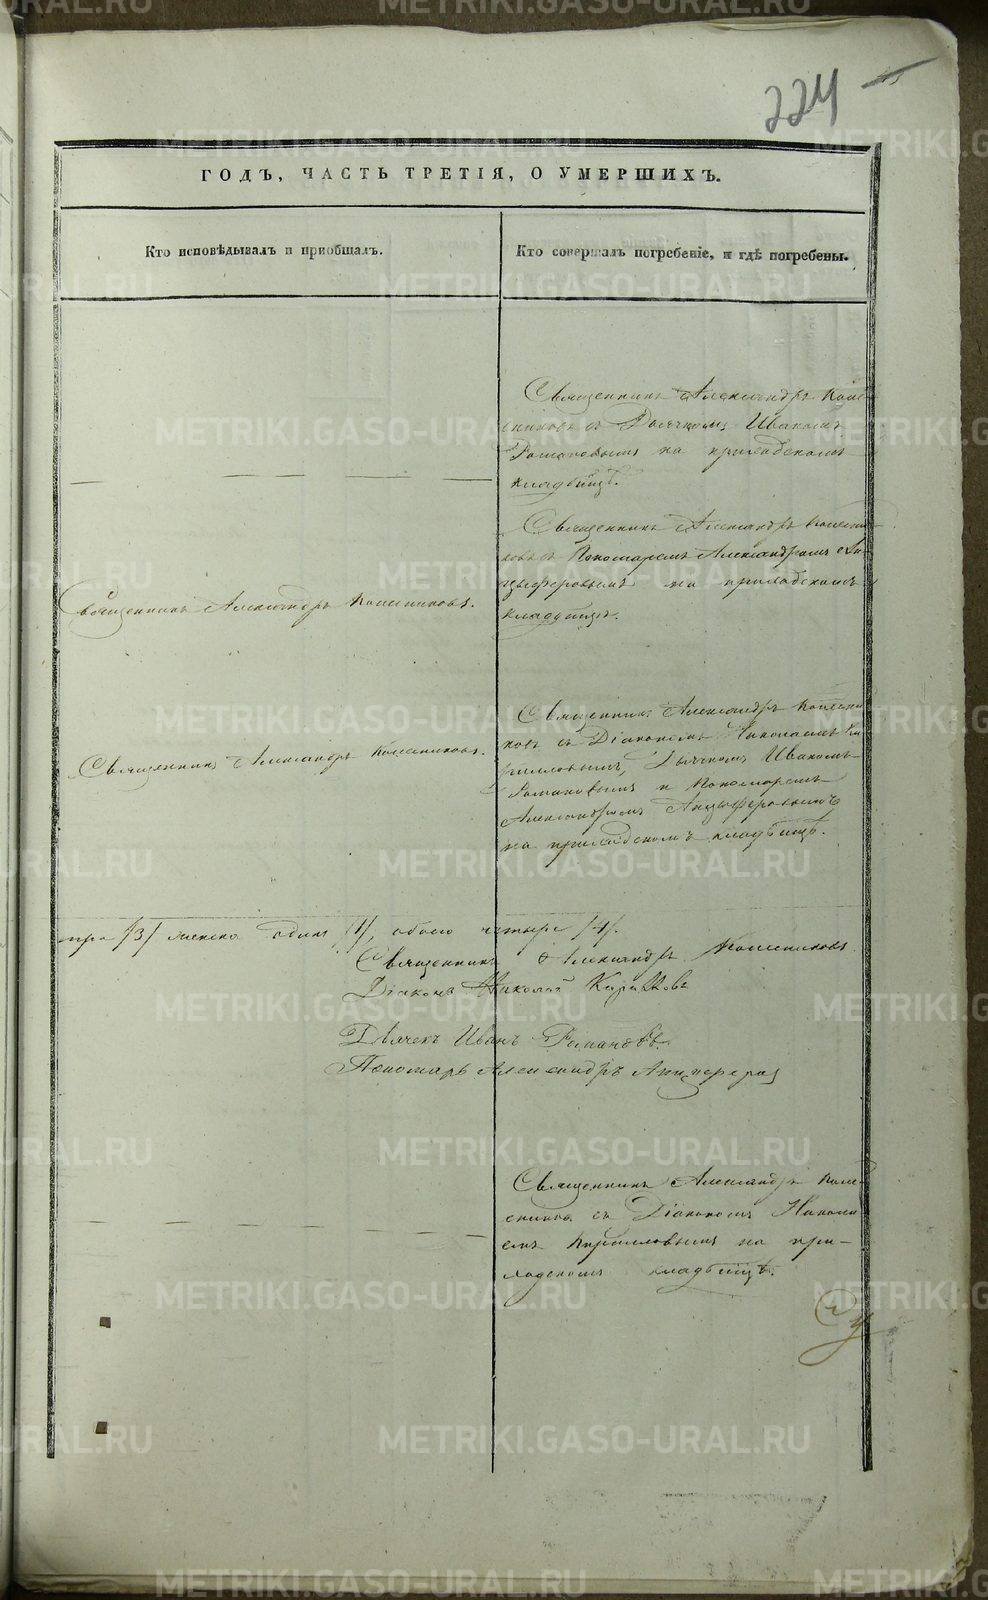 224
ГОДЪ, ЧАСТЬ ТРЕТІЯ, О УМЕРШИХЪ.
Кто исповѣдывалъ и пріобщалъ.
Кто совершалъ погребеніе, и гдѣ погребены.
Священникъ Александръ Колес-
никовъ съ Дьячкомъ Иваномъ
Романовымъ на приходскомъ
кладбищѣ.
Священникъ Александръ Колесни-
ковъ съ Пономаремъ Александромъ Ан-
цыферовымъ на приходскомъ
кладбищѣ.
Священникъ Александръ Колесниковъ.
Священникъ Александръ Колесни-
ковъ съ Діакономъ Николаемъ Ки-
рилловымъ, Дьячкомъ Иваномъ
Романовымъ и Пономаремъ
Александромъ Анцыферовымъ
на приходскомъ кладбищѣ.
Священникъ Александръ Колесниковъ.
три /3/ женска один /1/, обоего четыре /4/.
Священникъ Александръ Колесниковъ
Діаконъ Николай Кирилловъ
Дьячекъ Иванъ Романовъ
Пономарь Александръ Анцыферовъ
Священникъ Александръ Колес-
никовъ съ Діакономъ Никола-
емъ Кирилловымъ на при-
ходскомъ кладбищѣ.
METRIKI.GASO-URAL.RU